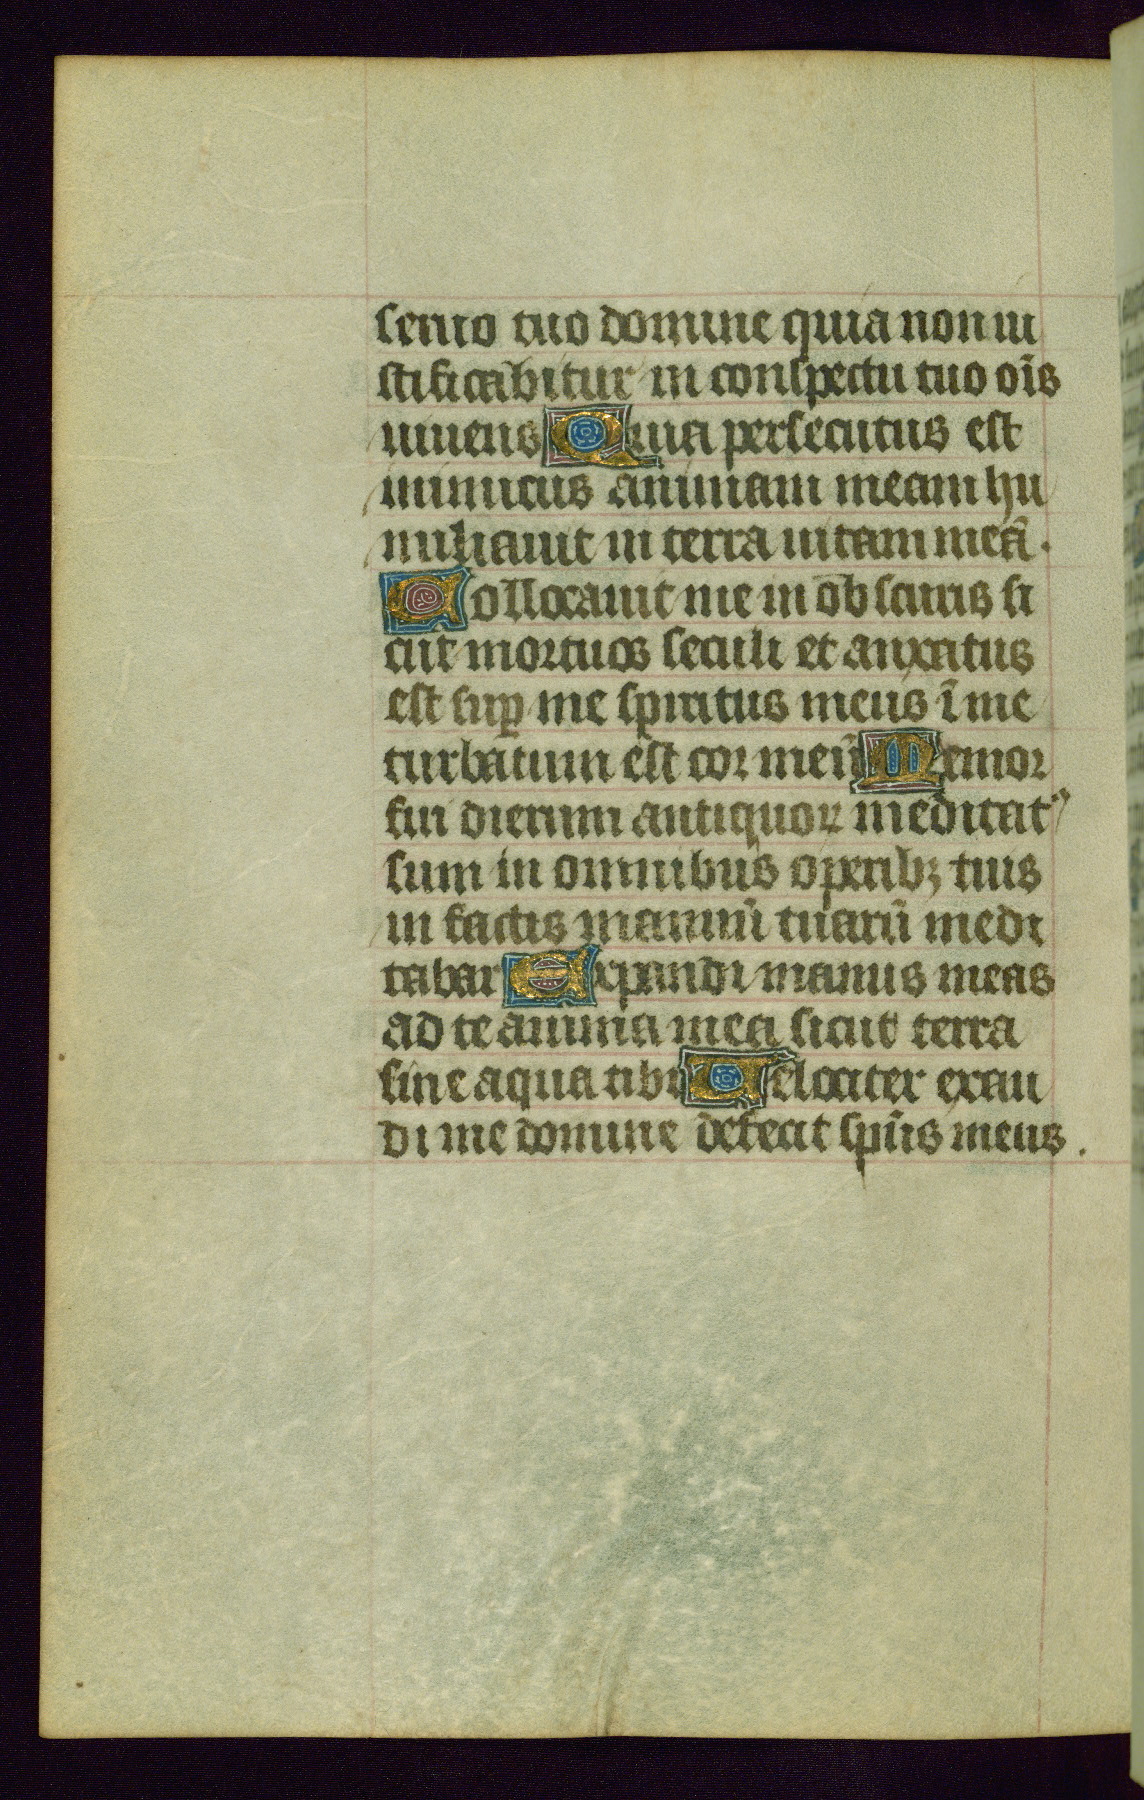 seruo tuo domine quia non iu
stificabitur in conspectu tuo oīs
uiuens Quia persecutus est
inimicus animam meam hu
miliauit in terra uitam meā.
Collocauit me in obscuris si
cut mortuos seculi et anxiatus
est sup̄ me spiritus meus ī me
turbatum est cor meū Memor
fui dierum antiquoꝝ meditatꝰ
sum in omnibus operibꝫ tuis
in factis manuū tuarū medi
tabar Expandi manus meas
ad te anima mea sicut terra
sine aqua tibi Uelociter exau
di me domine defecit sp̄us meus.